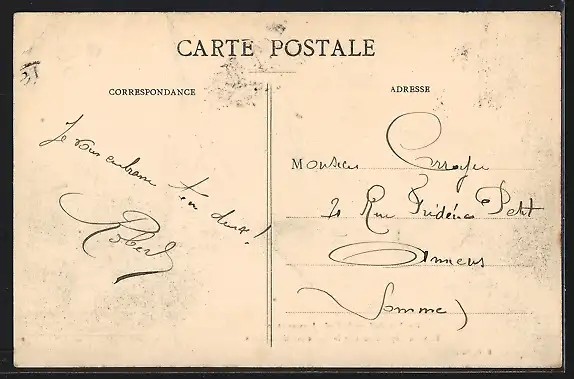 CARTE POSTALE
CORRESPONDANCE
ADRESSE
Je vous embrasse
tous deux!
Robert
Monsieur
Rue Frédéric Petit
Amiens
(Somme)